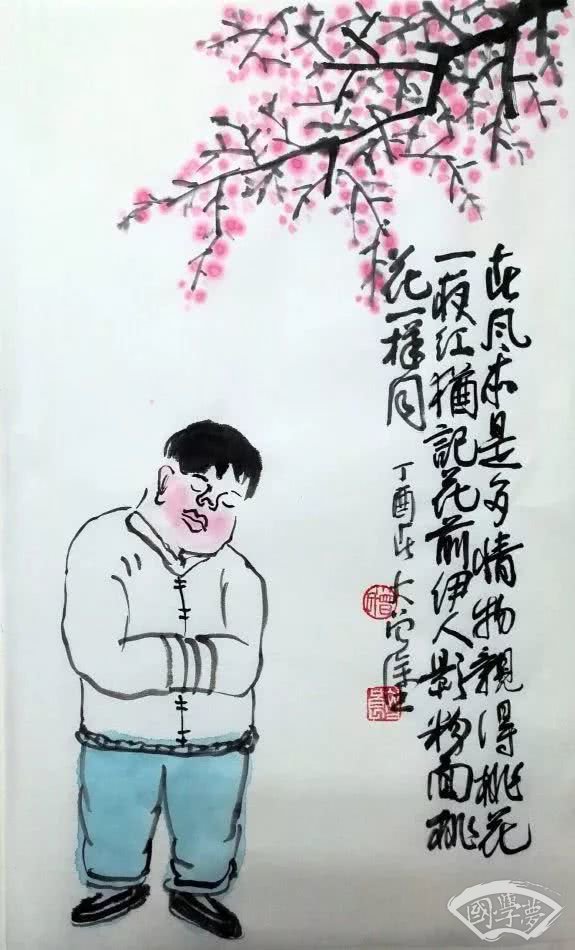 春风本是多情物親得桃花
一夜红猶記花前伊人影粉面桃
花一樣同
丁酉春大
國學夢